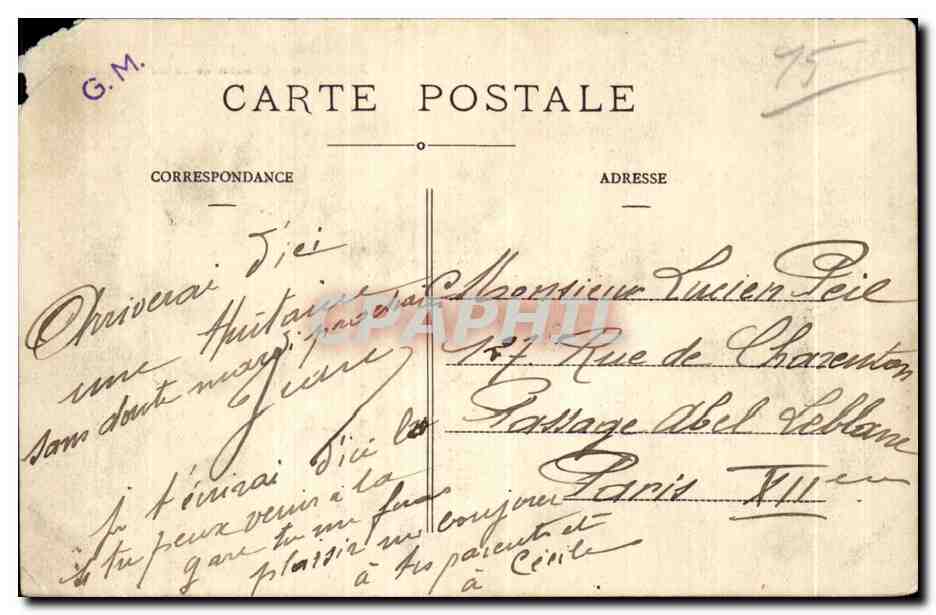 G.M.
75
CARTE POSTALE
CORRESPONDANCE
ADRESSE
Arriverai d'ici
une huitaine
sans doute mardi prochain
Jeane
je t'écrirai d'ici là
si tu peux venir à la
gare tu me feras
plaisir un bonjour
à tes parents et
à Cécile
Monsieur Lucien Peil
127. Rue de Charenton
Passage Abel Leblanc
Paris XIIem
CPAPHIL